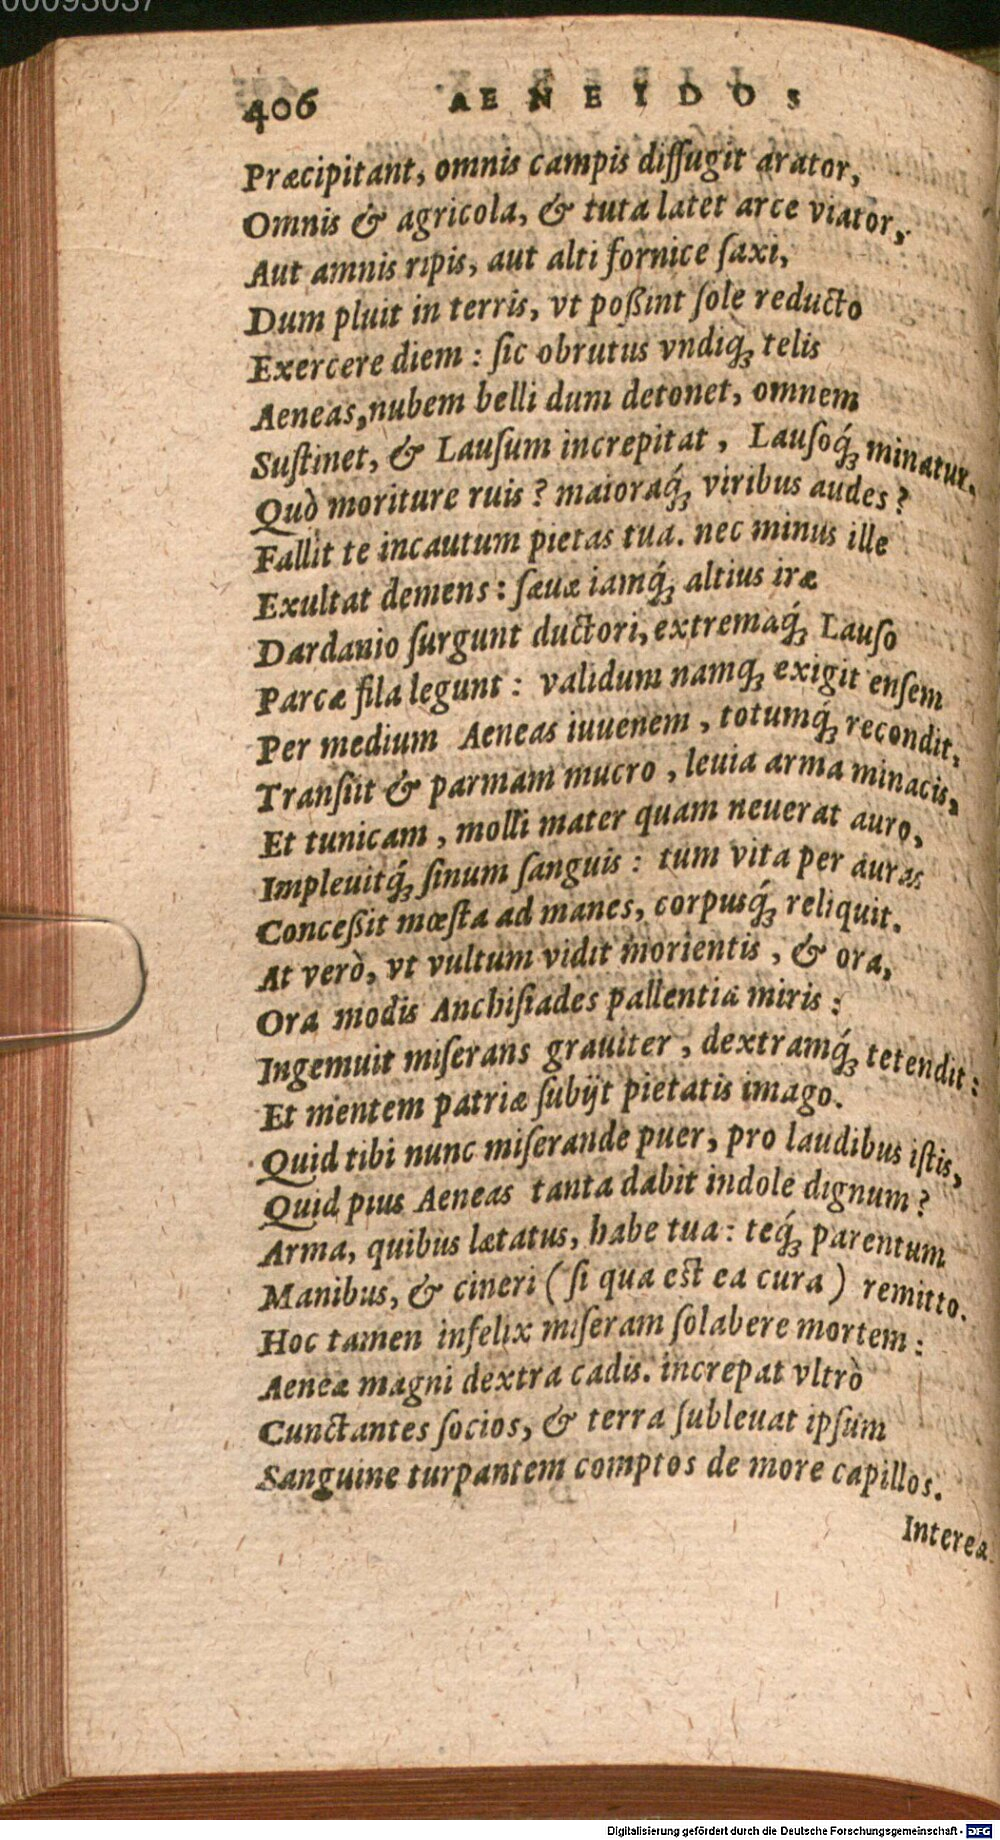 00093037
406 AENEIDOS
Præcipitant, omnis campis diffugit arator,
Omnis & agricola, & tuta latet arce viator,
Aut amnis ripis, aut alti fornice ſaxi,
Dum pluit in terris, vt poßint ſole reducto
Exercere diem : ſic obrutus vndiq́; telis
Aeneas, nubem belli dum detonet, omnem
Suſtinet, & Lauſum increpitat , Lauſoq́; minatur.
Quò moriture ruis ? maioraq́; viribus audes ?
Fallit te incautum pietas tua. nec minus ille
Exultat demens : ſæuæ iamq́; altius iræ
Dardanio ſurgunt ductori, extremaq́; Lauſo
Parcæ fila legunt : validum namq; exigit enſem
Per medium Aeneas iuuenem , totumq́; recondit,
Tranſiit & parmam mucro , leuia arma minacis,
Et tunicam , molli mater quam neuerat auro,
Impleuitq́; ſinum ſanguis : tum vita per auras
Conceßit mœſta ad manes, corpusq́; reliquit.
At verò, vt vultum vidit morientis , & ora,
Ora modis Anchiſiades pallentia miris :
Ingemuit miſerans grauiter , dextramq́; tetendit :
Et mentem patriæ ſubijt pietatis imago.
Quid tibi nunc miſerande puer, pro laudibus iſtis,
Quid pius Aeneas tanta dabit indole dignum ?
Arma, quibus lætatus, habe tua : teq́; parentum
Manibus, & cineri ( ſi qua est ea cura ) remitto.
Hoc tamen infelix miſeram ſolabere mortem :
Aeneæ magni dextra cadis. increpat vltrò
Cunctantes ſocios, & terra ſubleuat ipſum
Sanguine turpantem comptos de more capillos.
Interea
Digitalisierung gefördert durch die Deutsche Forschungsgemeinschaft - DFG